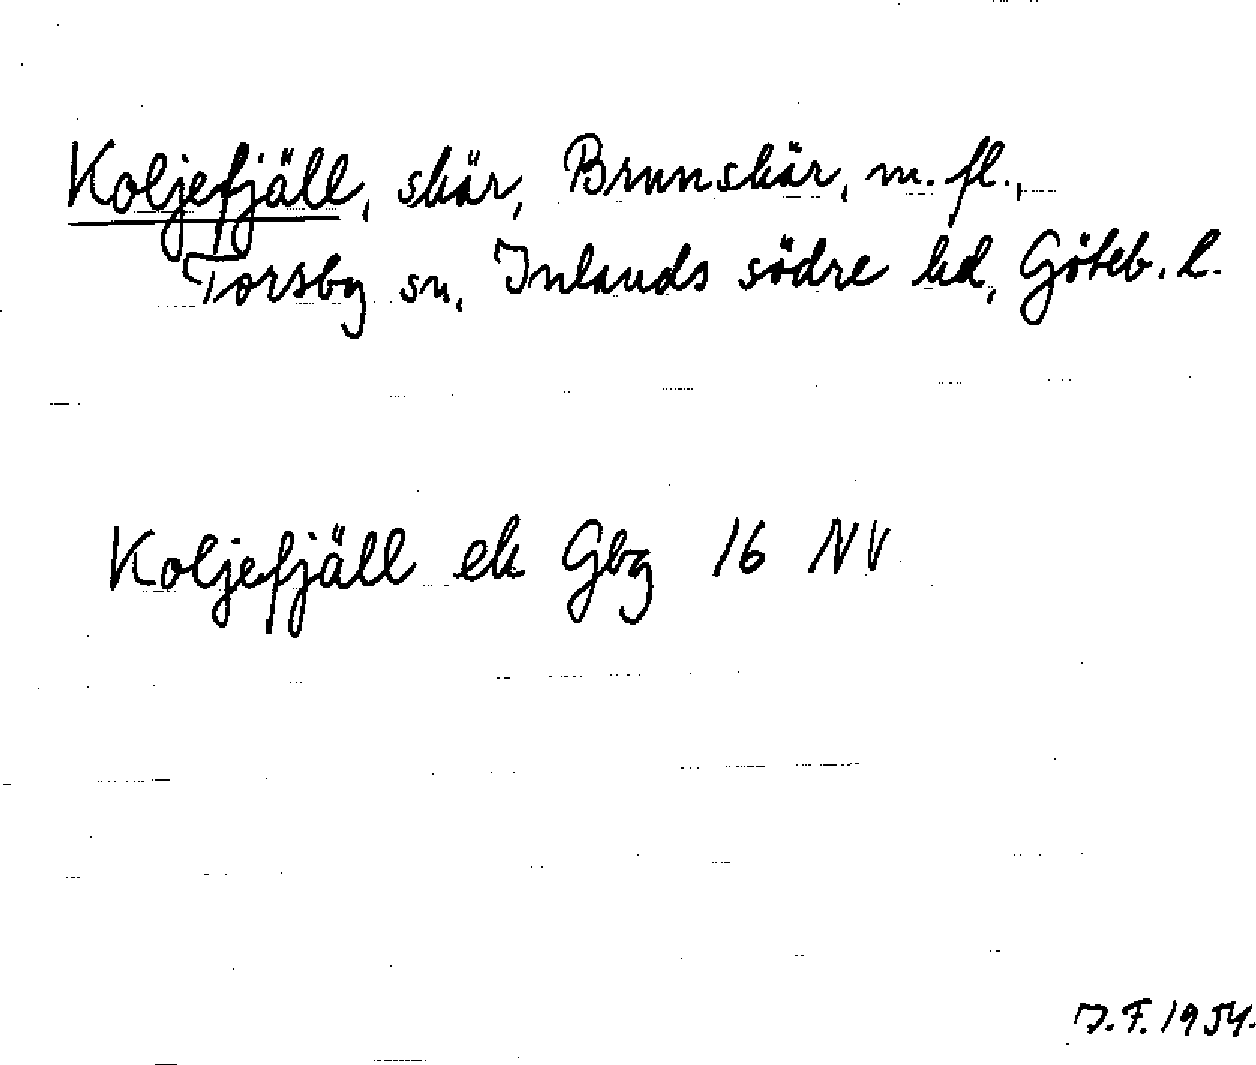 Koljefjäll, skär, Brunskär, m. fl.,
Torsby sn, Inlands södre hd, Göteb. l.
Koljefjäll ek Gbg 16 NV
J.F. 1954.